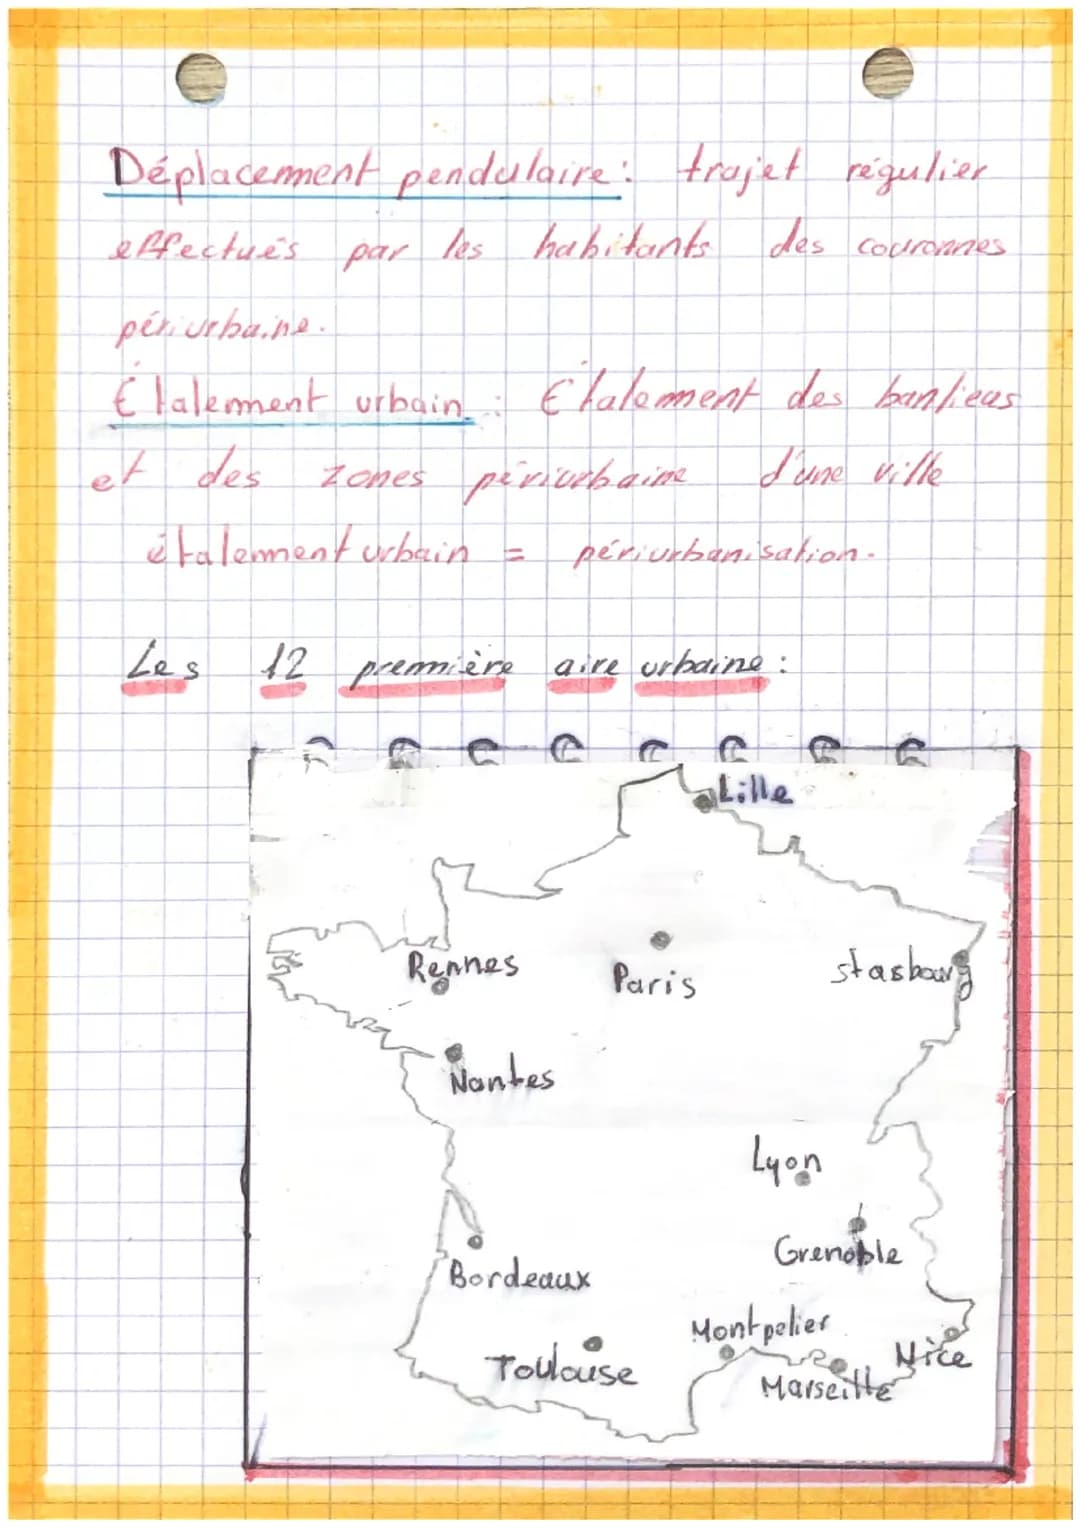 Déplacement pendulaire : trajet régulier
effectués par les habitants des couronnes
périurbaine.
Étalemment urbain : Étalemment des banlieus
et des zones périurbaine d'une ville
étalemment urbain = périurbanisation.
Les 12 première aire urbaine :
Lille
Rennes
Paris
stasbourg
Nantes
Lyon
Grenoble
Bordeaux
Montpelier
Nice
Toulouse
Marseille